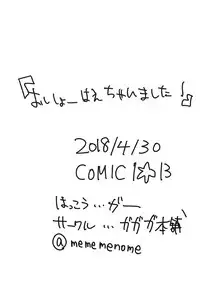 『おししょーはえちゃいました』
2018/4/30
COMIC1☆13
はっこう…がー
サークル…ガガガ本舗
@mememenome